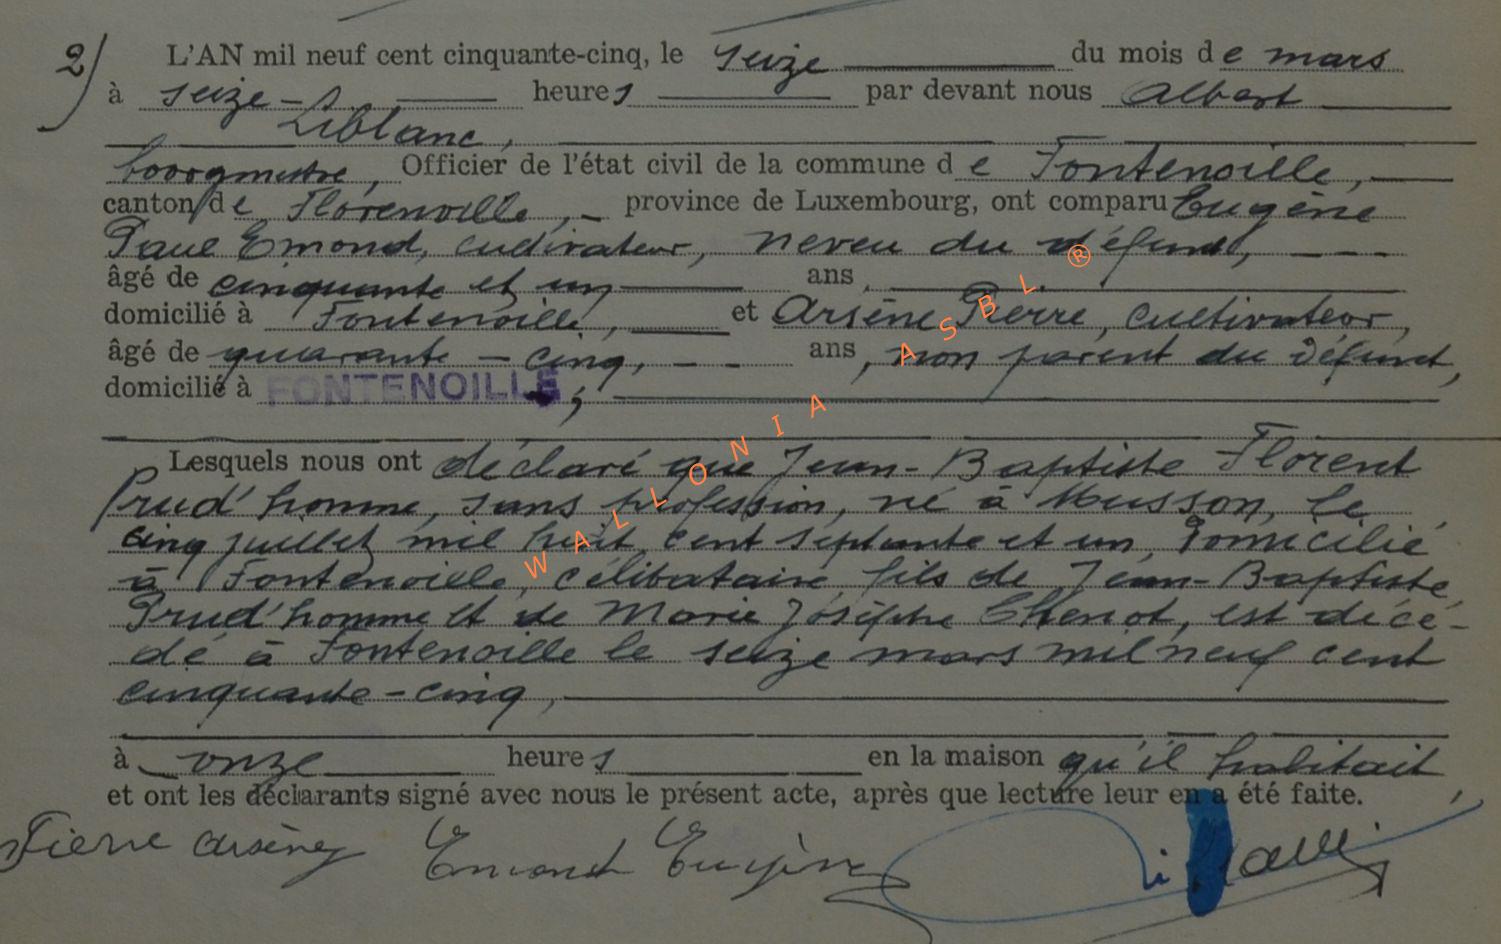 2) L'AN mil neuf cent cinquante-cinq, le seize du mois de mars
à seize heures par devant nous Albert
Leblanc,
bourgmestre, Officier de l'état civil de la commune de Fontenoille,
canton de Florenville, province de Luxembourg, ont comparu Eugène
Paul Emond, cultivateur, neveu du défunt,
âgé de cinquante et un ans
domicilié à Fontenoille, et Arsène Pierre, cultivateur,
âgé de quarante-cinq, ans, non parent du défunt,
domicilié à FONTENOILLE,
Lesquels nous ont déclaré que Jean-Baptiste Florent
Prud'homme, sans profession, né à Musson, le
cinq juillet mil huit cent septante et un, Domicilié
à Fontenoille, célibataire fils de Jean-Baptiste
Prud'homme et de Marie Josèphe, est décé-
dé à Fontenoille le seize mars mil neuf cent
cinquante-cinq,
à onze heures en la maison qu'il habitait,
et ont les déclarants signé avec nous le présent acte, après que lecture leur en a été faite.
Pierre Arsène Emond Eugène
WALLONIA ASBL ®